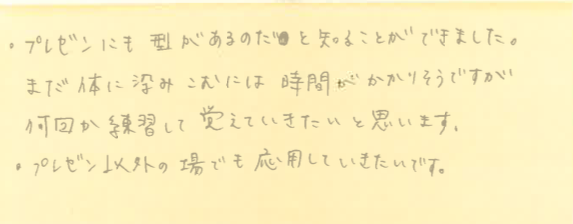 ・プレゼンにも型があるのだと知ることができました。
まだ体に染みこむには時間がかかりそうですが
何回か練習して覚えていきたいと思います。
・プレゼン以外の場でも応用していきたいです。